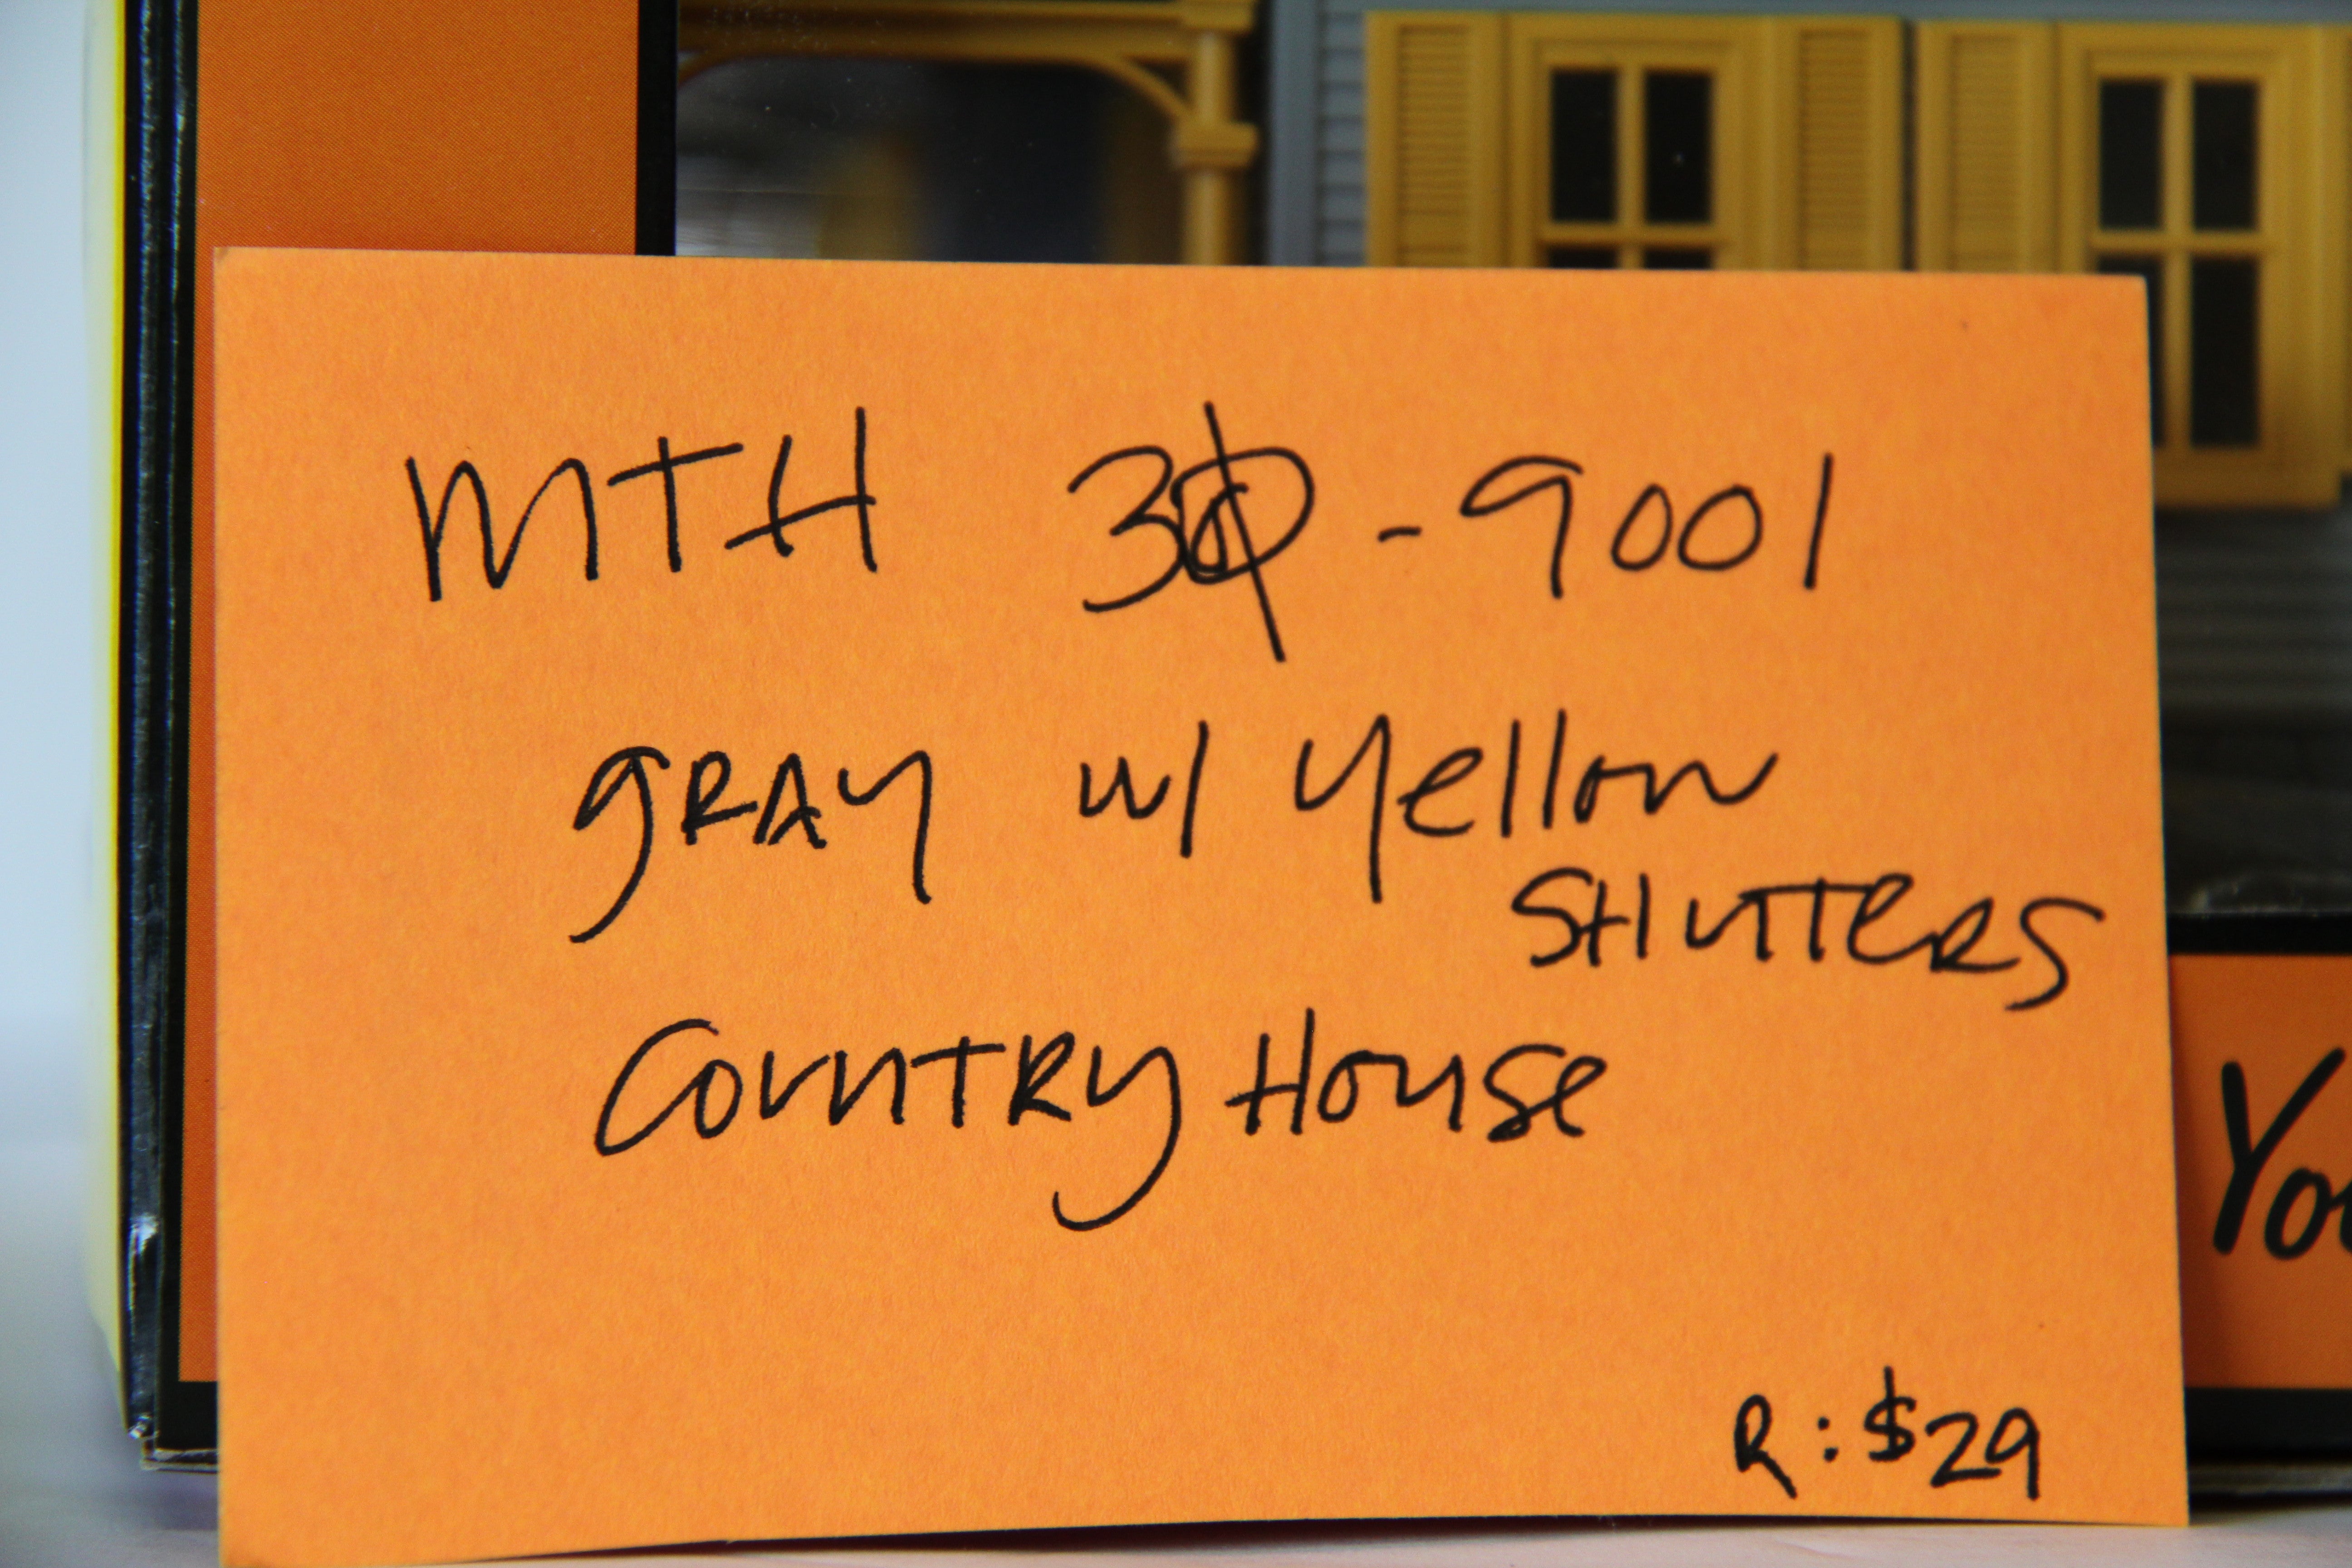 MTH 30-9001
GRAY w/ Yellow
SHUTTERS
COUNTRY HOUSE
R: $29
Yo